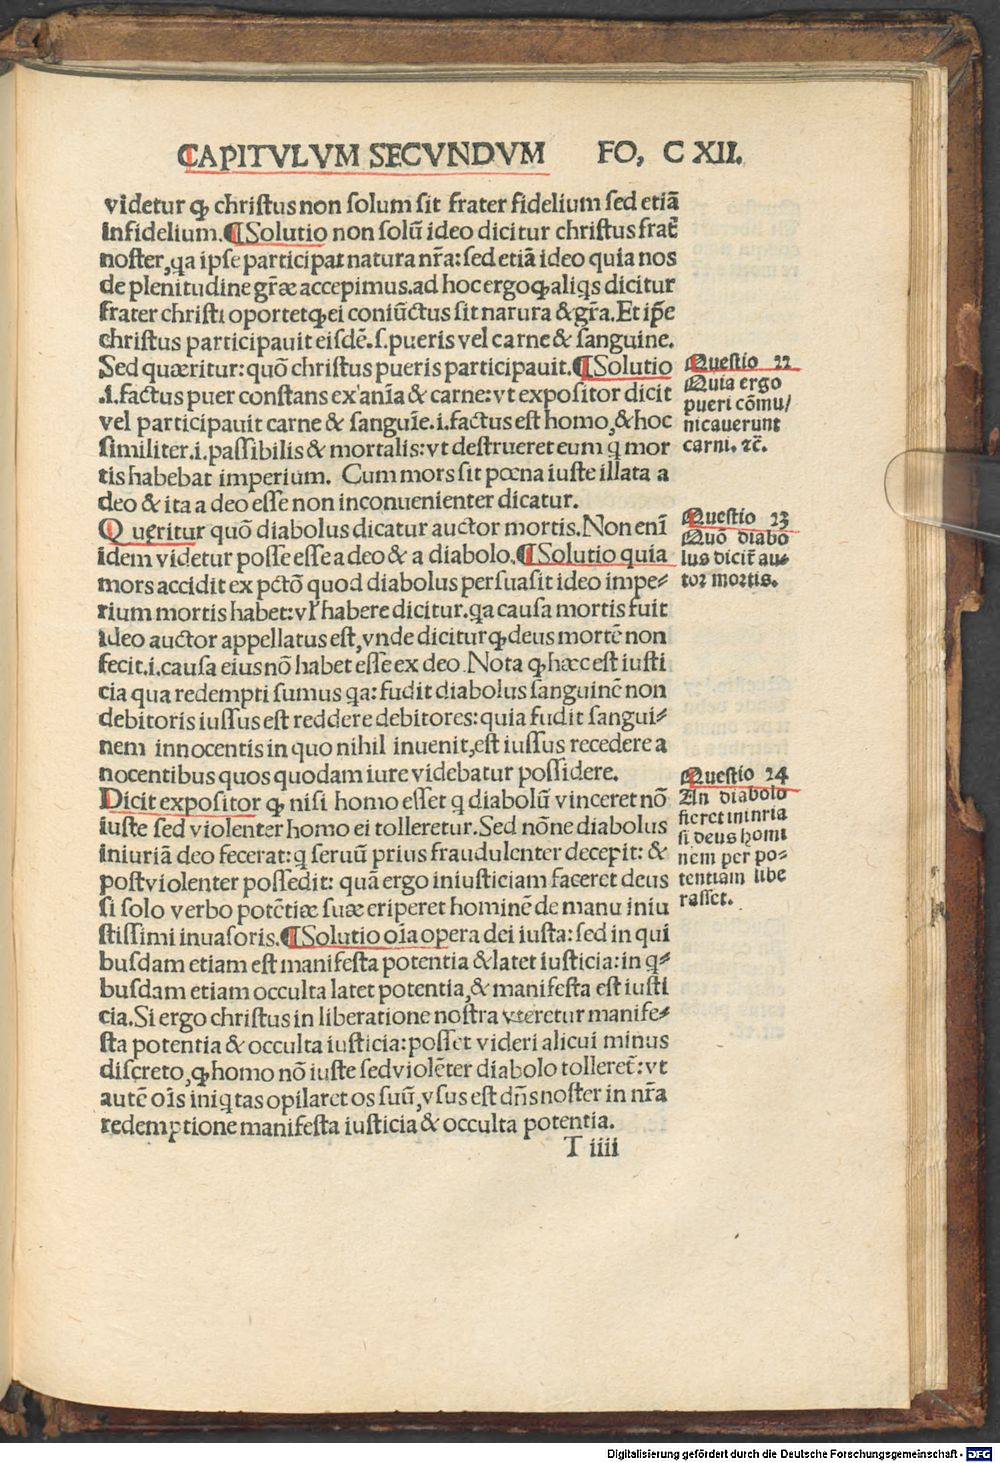 CAPITVLVM SECVNDVM FO, C XII.
videtur ꝙ chriſtus non ſolum ſit frater fidelium ſed etiã
infidelium.¶Solutio non ſolũ ideo dicitur chriſtus frat̃
noſter,qa ipſe participat natura nr̃a: ſed etiã ideo quia nos
de plenitudine gr̃æ accepimus.ad hoc ergo ꝙ aliqs dicitur
frater chriſti oportet ꝙ ei coniũctus ſit natura & gr̃a. Et ip̃e
chriſtus participauit eiſdẽ.ſ.pueris vel carne & ſanguine.
Sed quæritur: quõ chriſtus pueris participauit.¶Solutio
.i.factus puer conſtans ex anĩa & carne: vt expoſitor dicit
vel participauit carne & ſanguĩe.i.factus eſt homo,& hoc
ſimiliter.i.paſſibilis & mortalis: vt deſtrueret eum q mor
tis habebat imperium. Cum mors ſit pœna iuſte illata a
deo & ita a deo eſſe non inconuenienter dicatur.
Queritur quõ diabolus dicatur auctor mortis. Non enĩ
idem videtur poſſe eſſe a deo & a diabolo.¶Solutio quia
mors accidit ex pctõ quod diabolus perſuaſit ideo impe⸗
rium mortis habet: vl' habere dicitur.qa cauſa mortis fuit
ideo auctor appellatus eſt,vnde dicitur ꝙ deus mortẽ non
fecit.i.cauſa eius nõ habet eſſe ex deo. Nota ꝙ hæc eſt iuſti
cia qua redempti ſumus qa: fudit diabolus ſanguinẽ non
debitoris iuſſus eſt reddere debitores: quia fudit ſangui⸗
nem innocentis in quo nihil inuenit,eſt iuſſus recedere a
nocentibus quos quodam iure videbatur poſſidere.
Dicit expoſitor ꝙ niſi homo eſſet q diabolũ vinceret nõ
iuſte ſed violenter homo ei tolleretur. Sed nõne diabolus
iniuriã deo fecerat: q ſeruũ prius fraudulenter decepit: &
poſt violenter poſſedit: quã ergo iniuſticiam faceret deus
ſi ſolo verbo potẽtiæ ſuæ eriperet hominẽ de manu iniu
ſtiſſimi inuaſoris.¶Solutio oĩa opera dei iuſta: ſed in qui
buſdam etiam eſt manifeſta potentia & latet iuſticia: in q⸗
buſdam etiam occulta latet potentia,& manifeſta eſt iuſti
cia. Si ergo chriſtus in liberatione noſtra vteretur manife⸗
ſta potentia & occulta iuſticia: poſſet videri alicui minus
diſcreto,ꝙ homo nõ iuſte ſed violẽter diabolo tolleret̃: vt
autẽ oĩs iniqtas opilaret os ſuũ,vſus eſt dñs noſter in nr̃a
redemptione manifeſta iuſticia & occulta potentia.
T iiii
Queſtio 22
Quia ergo
pueri cõmu/
nicauerunt
carni. ⁊c̃.
Queſtio 23
Quõ diabo
lus dicit̃ au⸗
tor mortis.
Queſtio 24
An diabolo
fieret iniuria
ſi deus homi
nem per po⸗
tentiam libe
raſſet.
Digitalisierung gefördert durch die Deutsche Forschungsgemeinschaft - DFG